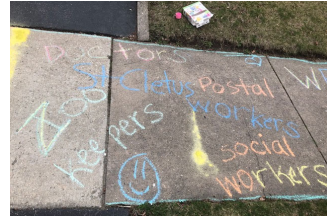 Doctors
St Cletus
Postal
Workers
Zoo
Keepers
social
workers